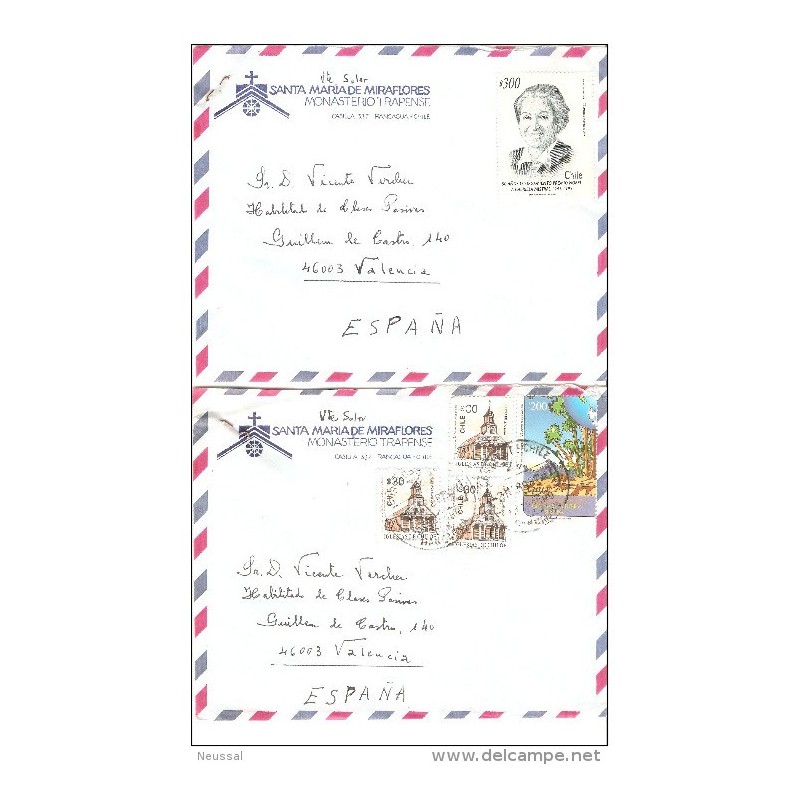 Vte Soler
SANTA MARIA DE MIRAFLORES
MONASTERIO TRAPENSE
CASILLA 537 RANCAGUA-CHILE
$300
Chile
Sr. D. Vicente Vercher
Habilitad de Clases Pasivas
Guillem de Castro, 140
46003 Valencia
ESPAÑA
Vte Soler
SANTA MARIA DE MIRAFLORES
MONASTERIO TRAPENSE
CASILLA 537 RANCAGUA-CHILE
CHILE
IGLESIAS DE CHILOE
$200
CHILE $30
IGLESIAS DE CHILOE
CHILE $30
IGLESIAS DE CHILOE
Sr. D. Vicente Vercher
Habilitad de Clases Pasivas
Guillem de Castro, 140
46003 Valencia
ESPAÑA
Neussal
www.delcampe.net